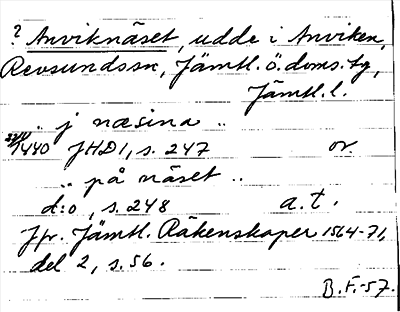 ? Anviknäset, udde i Anviken,
Revsunds sn, Jämtl. ö. doms. tg,
Jämtl. l.
.. j næsina ..
1440 JHD1, s. 247 or.
.. på näset ..
d:o, s. 248 a. t.
Jfr. Jämtl. Räkenskaper 1564-71,
del 2, s. 56.
B.F.-57.